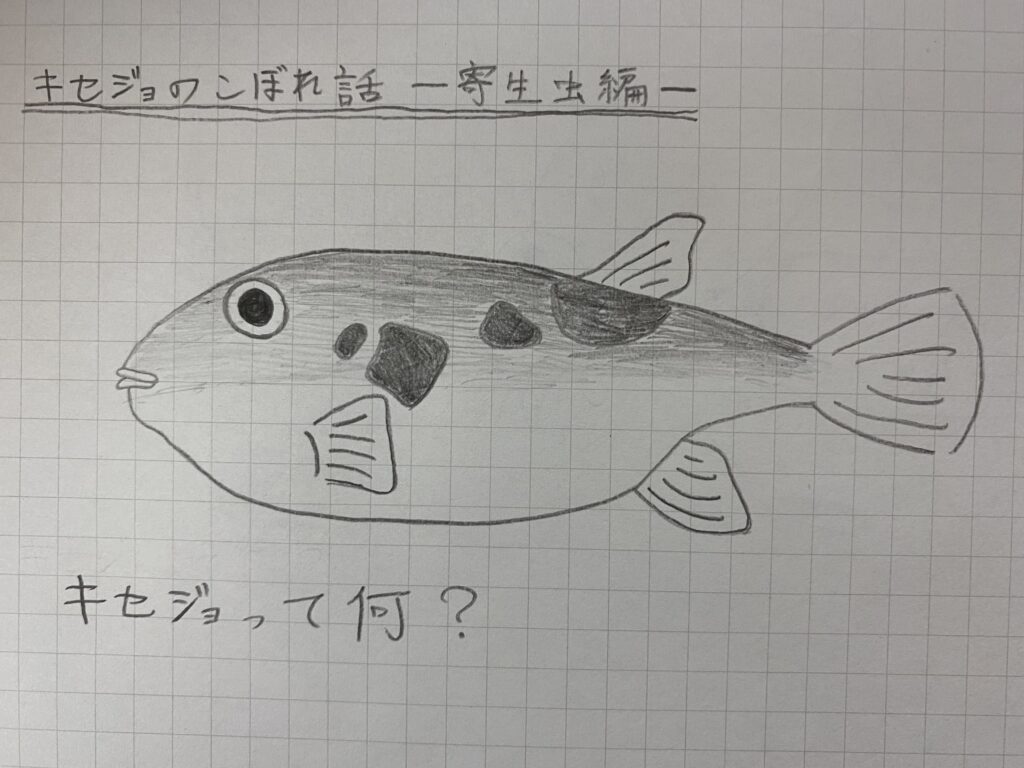 キセジョのこぼれ話 ー寄生虫編ー
キセジョって何？